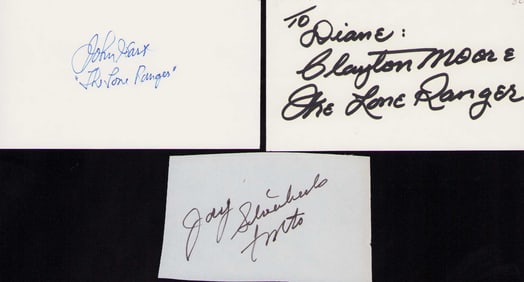 John Hart
"The Lone Ranger"
To
Diane:
Clayton Moore
The Lone Ranger
Jay Silverheels
Tonto